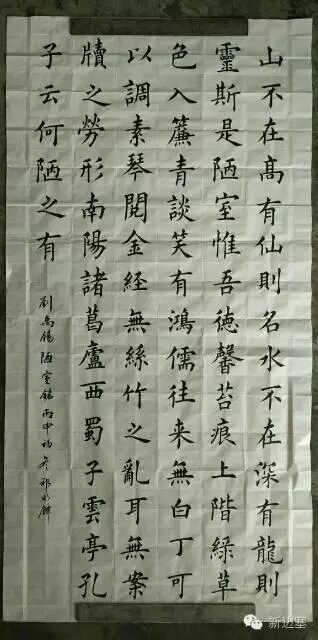 山不在髙有仙則名水不在深有龍則
靈斯是陋室惟吾德馨苔痕上階綠草
色入簾青談笑有鴻儒往来無白丁可
以調素琴閱金経無絲竹之亂耳無案
牘之勞形南陽諸葛廬西蜀子雲亭孔
子云何陋之有
劉禹錫陋室銘丙申初冬
新边塞